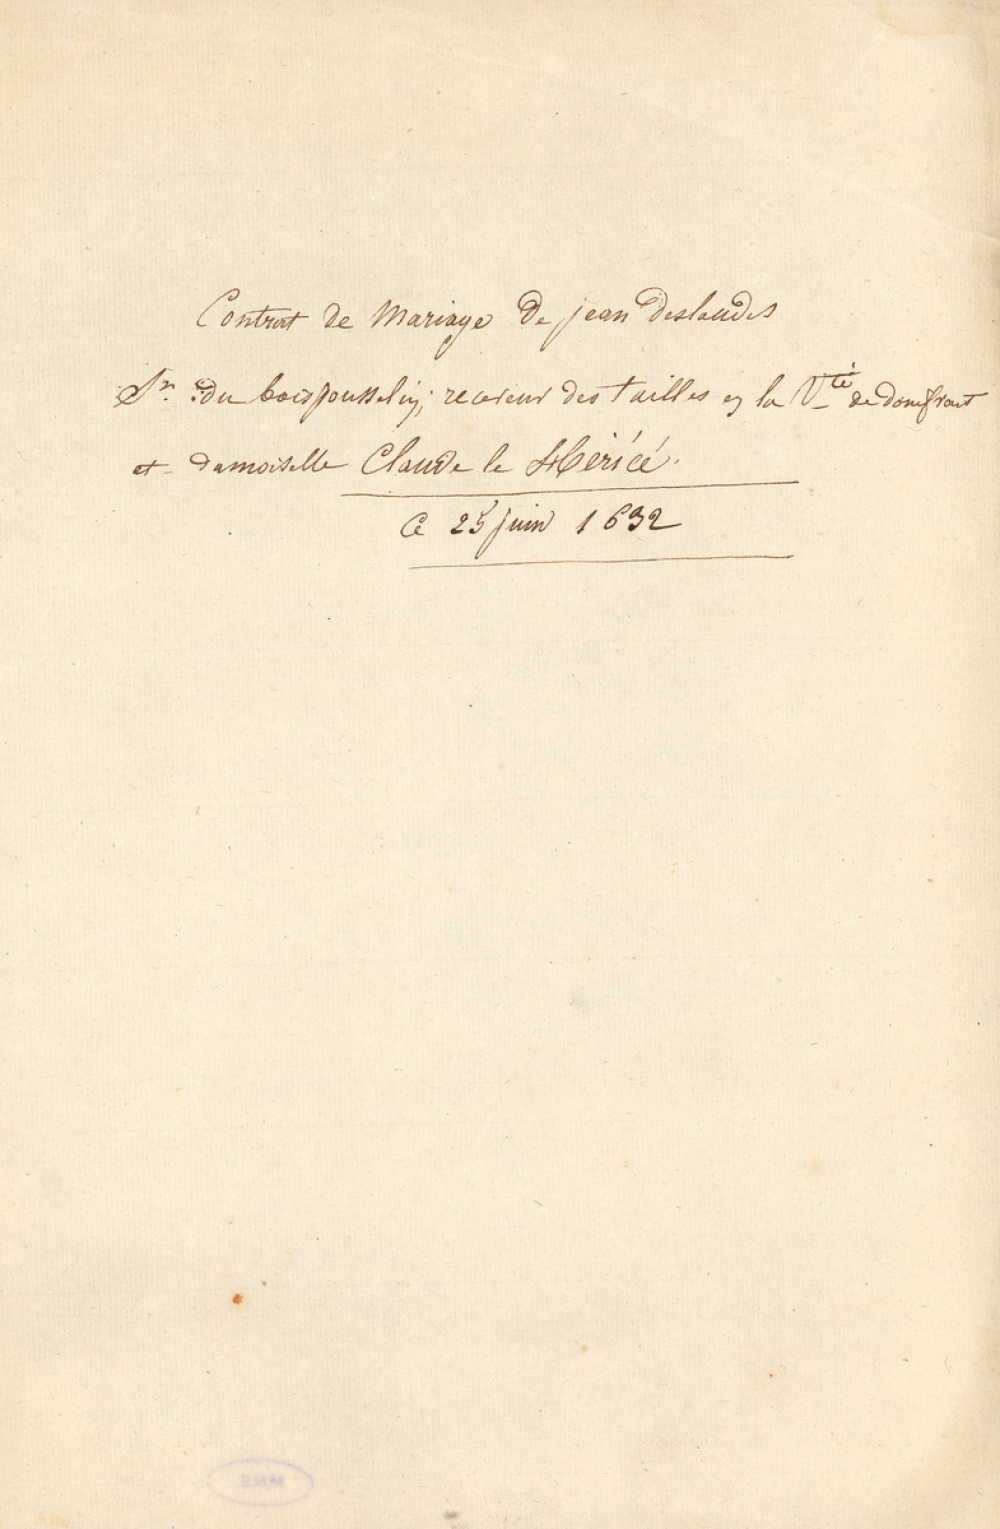 Contrat de Mariage De jean Deslandes
Sr. du boisjousselin; receveur des tailles en la Vté de domfront
et damoiselle Claude le Héricé.
Ce 25 juin 1632